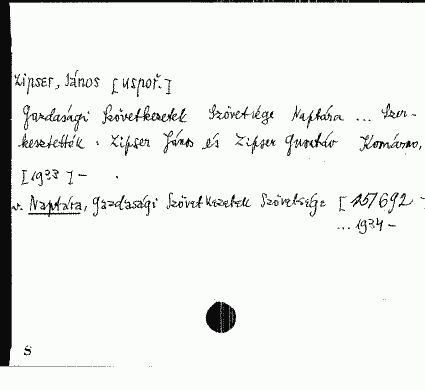 Zipser, János [uspoř.]
Gazdasági Szövetkezetek Szövetsége Naptára ... Szer-
kesztették: Zipser János és Zipser Gusztáv Komárno,
[1933] -
v. Naptára, Gazdasági Szövetkezetek Szövetsége [457692
... 1934 -
S